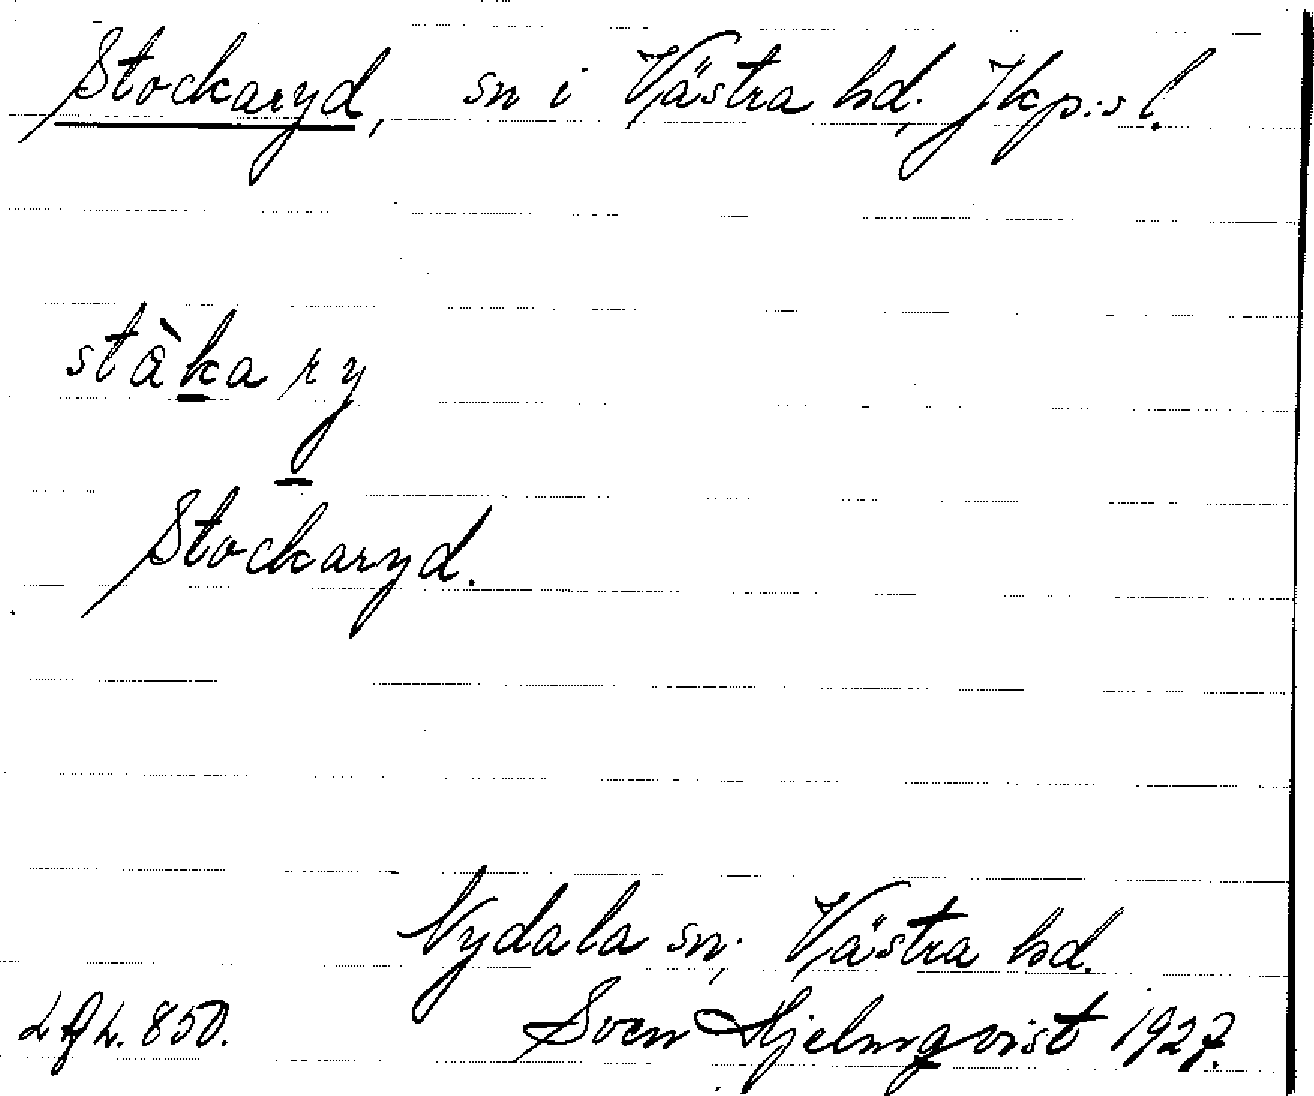 Stockaryd, sn i Västra hd., Jkp:s l.
stàkary
Stockaryd.
Nydala sn, Västra hd.
LAL. 850. Sven Hjelmqvist 1927.